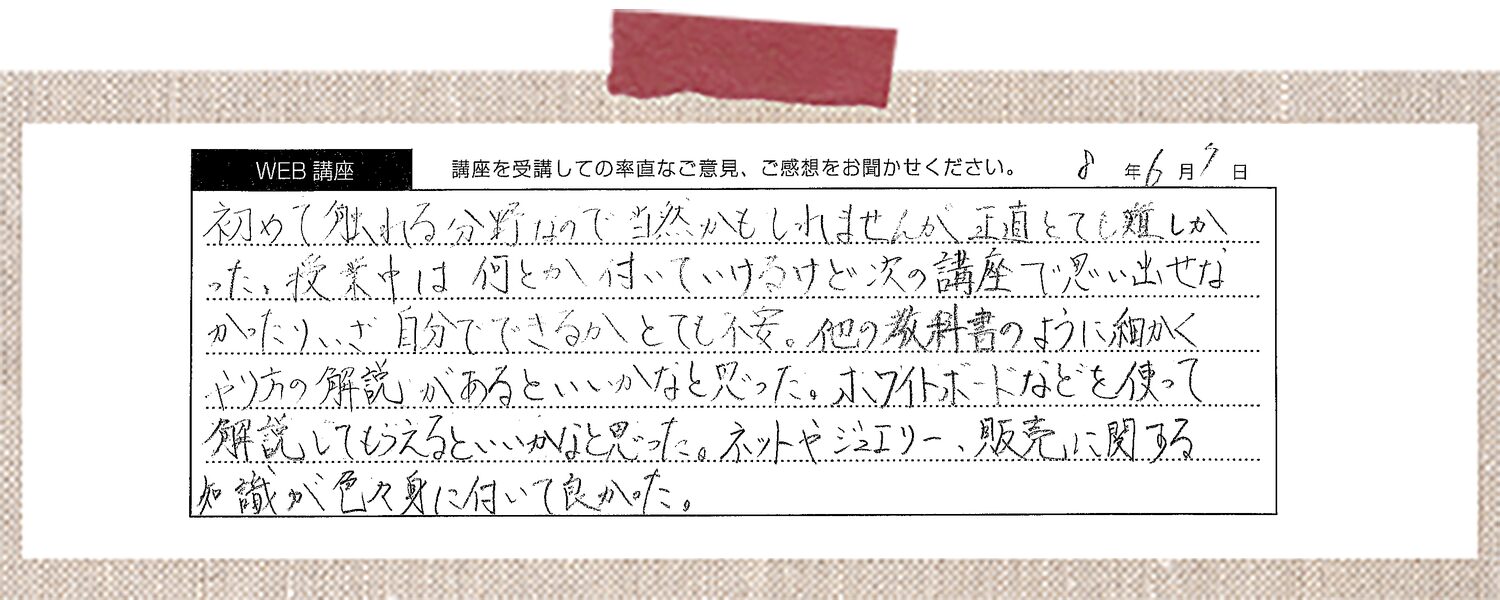 WEB 講座 講座を受講しての率直なご意見、ご感想をお聞かせください。 8年6月7日
初めて触れる分野なので当然かもしれませんが正直とても難しか
った。授業中は何とか付いていけるけど次の講座で思い出せな
かったり、いざ自分でできるかとても不安。他の教科書のように細かく
やり方の解説があるといいかなと思った。ホワイトボードなどを使って
解説してもらえるといいかなと思った。ネットやジュエリー、販売に関する
知識が色々身に付いて良かった。